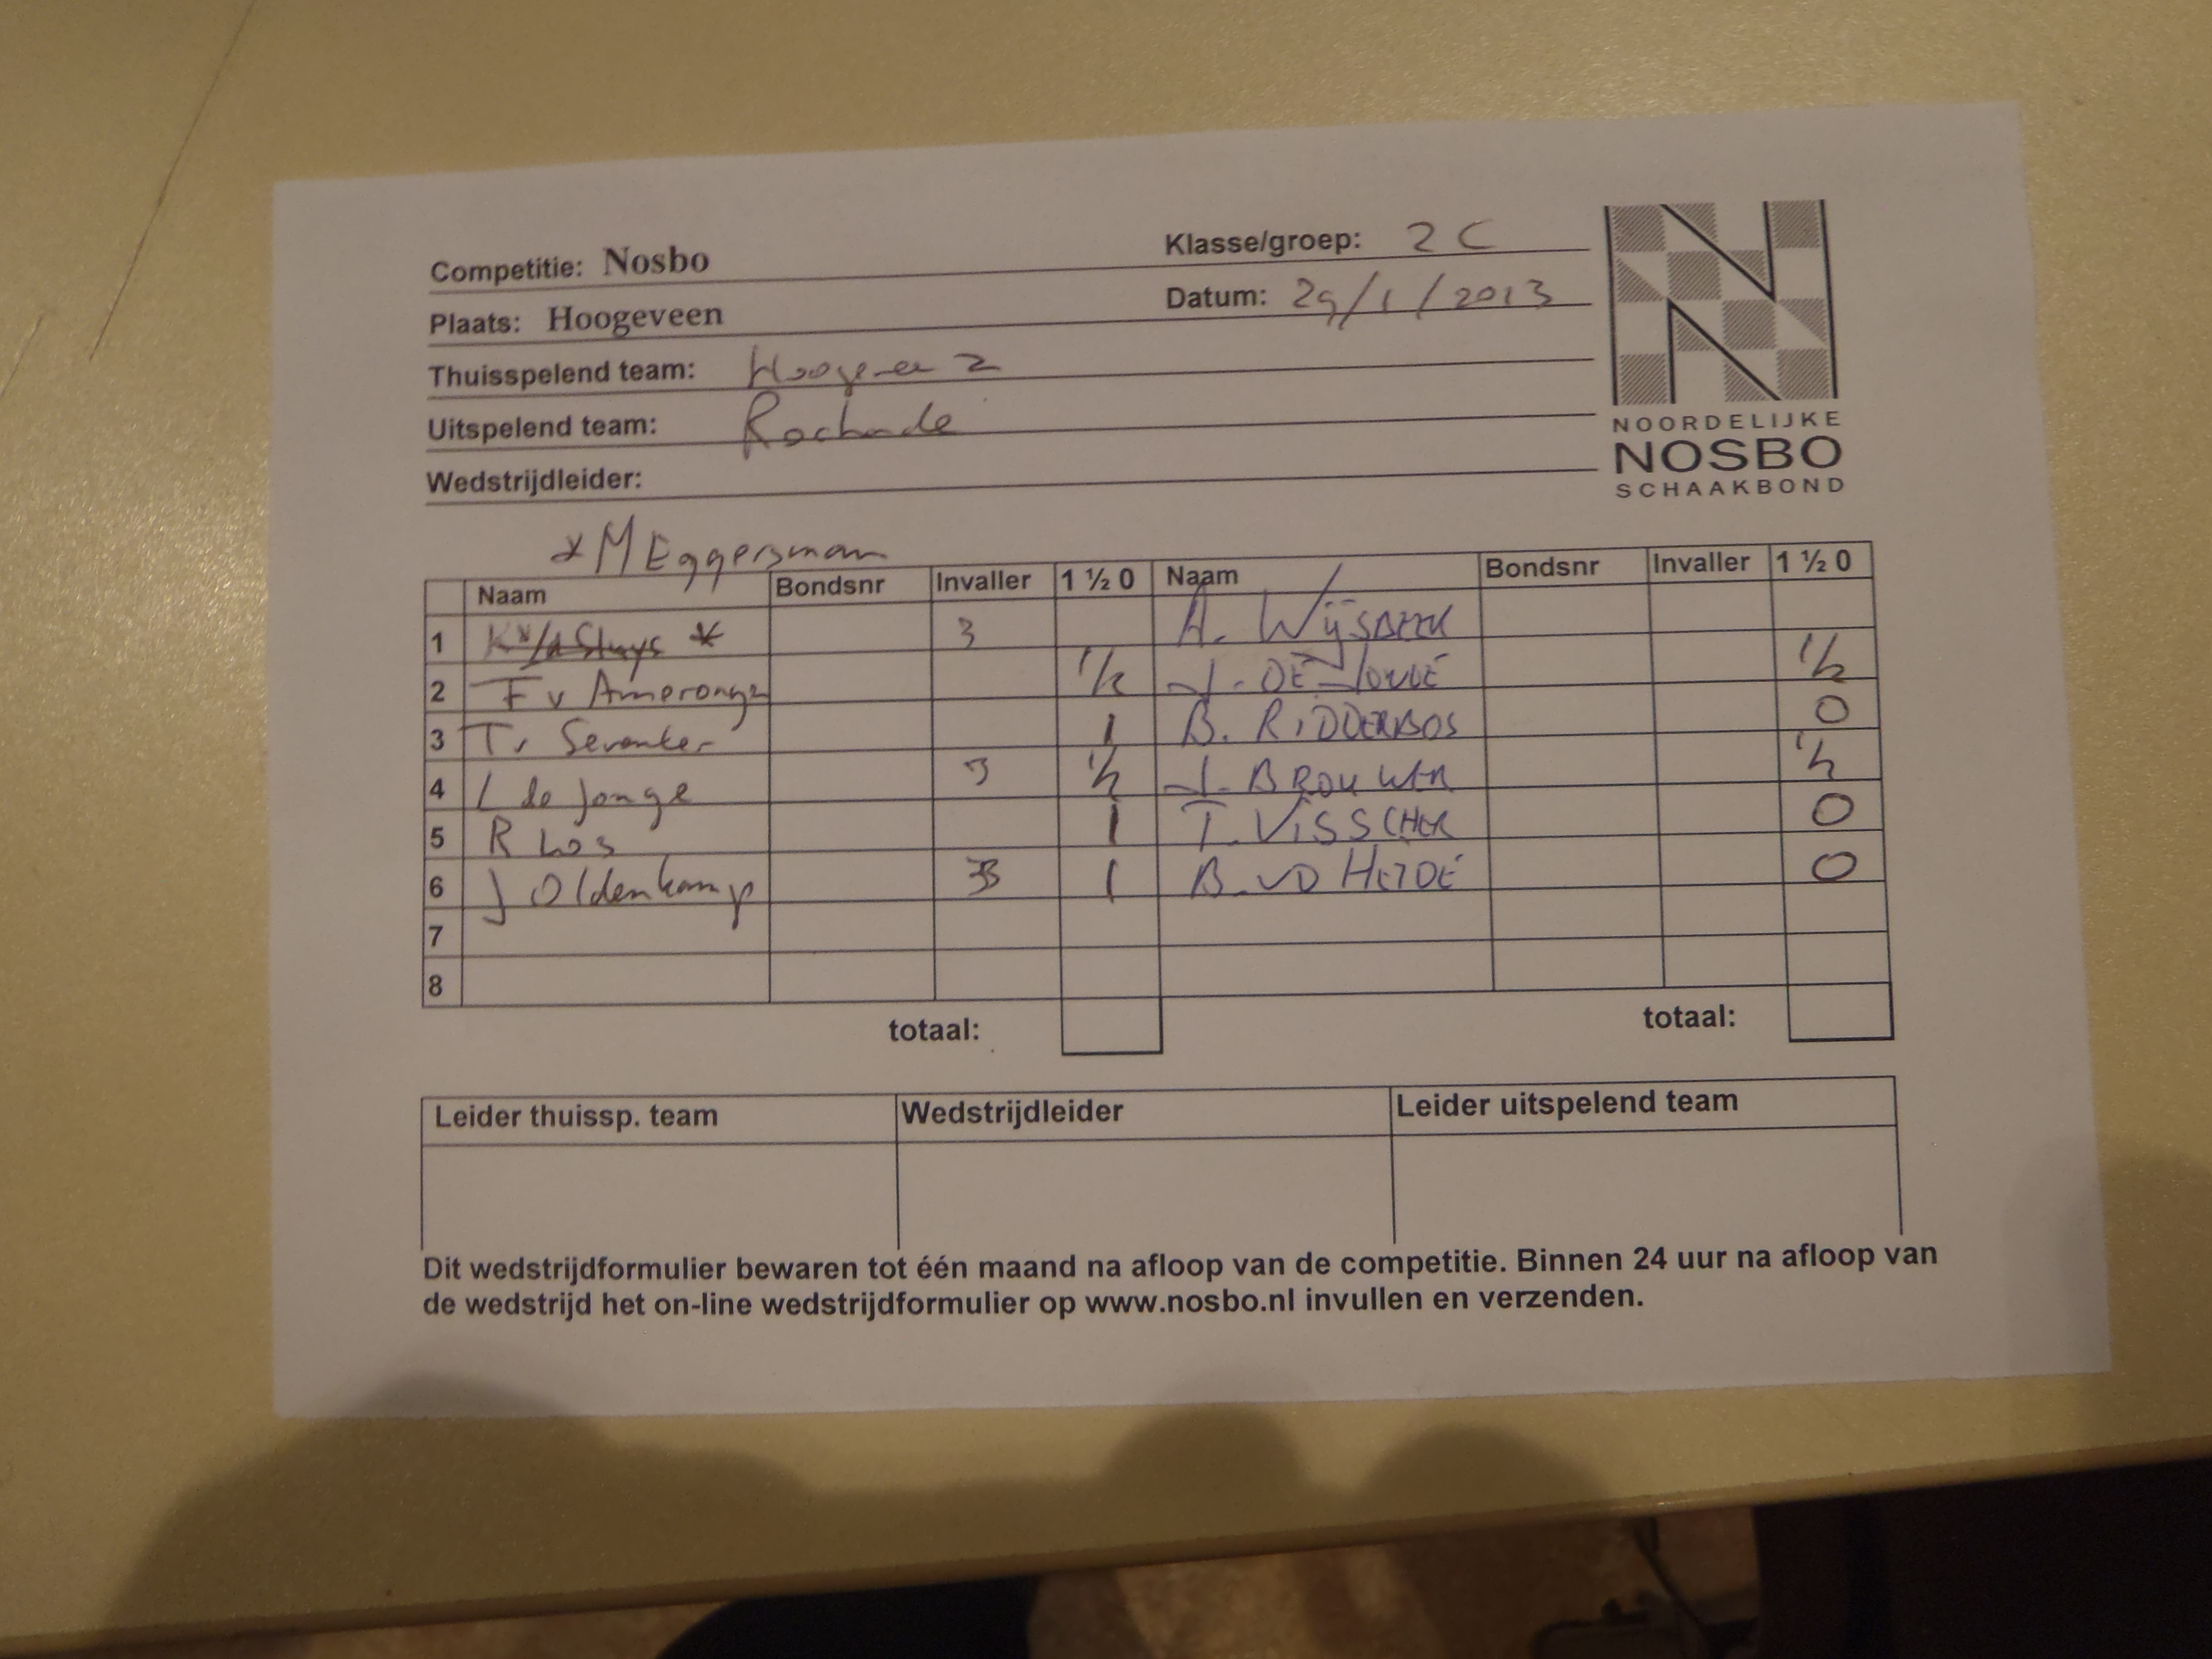 Competitie: Nosbo Klasse/groep: 2 C
Plaats: Hoogeveen Datum: 29/1/2013
Thuisspelend team: 2
Uitspelend team: Rochade
Wedstrijdleider:
NOORDELIJKE
NOSBO
SCHAAKBOND
* M Eggersman
Naam Bondsnr Invaller 1 ½ 0 Naam Bondsnr Invaller 1 ½ 0
1 K v/d Sluys * 3 A. WIJSBEEK
2 F v Amerongen ½ J. DE JONGE ½
3 1 B. RIDDERBOS 0
4 L de Jonge 3 ½ J. BROUWER ½
5 R Los 1 T. VISSCHER 0
6 J Oldenkamp 3 1 B. VD HEIDE 0
7
8
totaal: totaal:
Leider thuissp. team Wedstrijdleider Leider uitspelend team
Dit wedstrijdformulier bewaren tot één maand na afloop van de competitie. Binnen 24 uur na afloop van
de wedstrijd het on-line wedstrijdformulier op www.nosbo.nl invullen en verzenden.